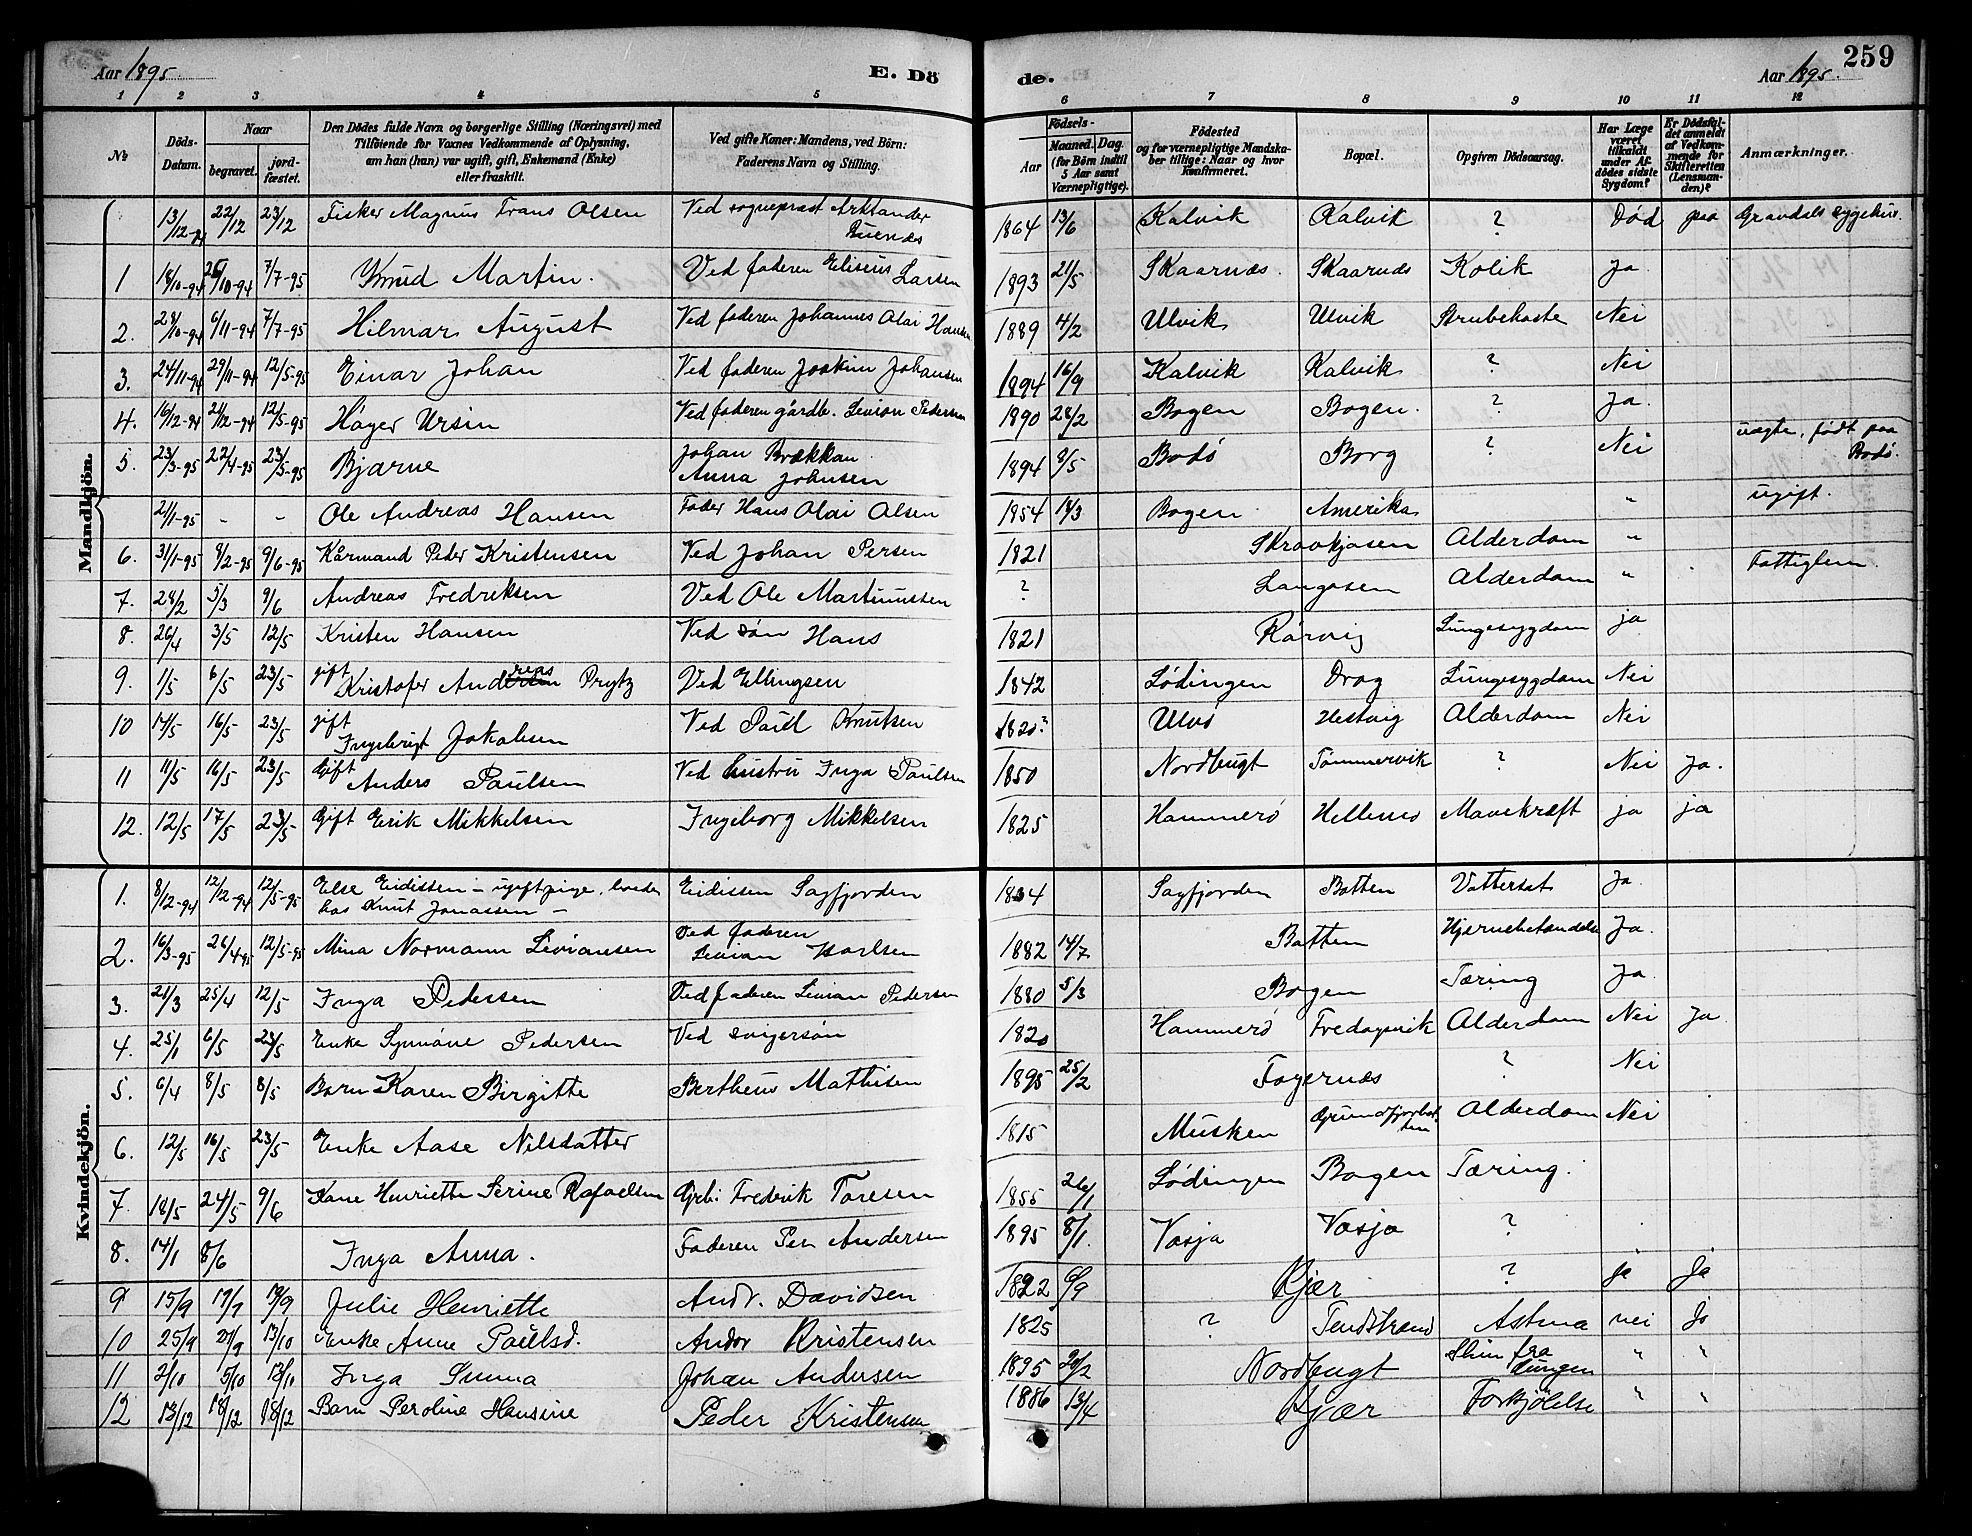 Aar 1895. E. Dö de. Aar 1895. 259
1 2 3 4 5 6 7 8 9 10 11 12
№ Döds-Datum. Naar begravet. jordfæstet. Den Dödes fulde Navn og borgerlige Stilling (Næringsvei) med Tilföiende for Voxnes Vedkommende af Oplysning, om han (hun) var ugift, gift, Enkemand (Enke) eller fraskilt. Ved gifte Koner: Mandens, ved Börn: Faderens Navn og Stilling. Födsels- Aar Maaned. Dag. (for Börn indtil 5 Aar samt Værnepligtige). Födested og for værnepligtige Mandskaber tillige: Naar og hvor konfirmeret. Bopæl. Opgiven Dödsaarsag. Har Læge været tilkaldt under Afdödes sidste Sygdom? Er Dödsfaldet anmeldt af Vedkommende for Skifteretten (Lensmanden)? Anmærkninger.
Mandkjön.
13/12-94 22/12 23/12 Fisker Magnus Frans Olsen Ved sogneprest Arktander Buenæs 1864 13/6 Kalvik Kalvik ? Död paa Gravdals sygehus.
1 18/10-94 26/10-94 7/7-95 Knud Martin. Ved faderen Eliseus Larsen 1893 21/5 Skaarnæs. Skaarnæs Kolik Ja
2. 28/10-94 6/11-94 7/7-95 Hilmar August Ved faderen Johannes Olai Hansen 1889 4/2 Ulvik Ulvik Strubehoste Nei
3. 24/11-94 29/11-94 12/5-95 Einar Johan Ved faderen Joakim Johansen 1894 16/9 Kalvik Kalvik ? Nei
4. 16/12-94 21/12-94 12/5-95 Höyer Ursin Ved faderen gårdb. Livion Pedersen 1890 28/2 Bogen Bogen. ? Ja.
5. 23/3-95 22/4-95 23/5-95 Bjarne Johan Brækkan Anna Johnsen 1894 8/5 Bodö Borg ? Nei uægte, født paa Bodö.
2/1-95 - - Ole Andreas Hansen Fader Hans Olai Olsen 1854 14/3 Bogen Amerika " ugift.
6. 31/1-95 8/2-95 9/6-95 Kårmand Peder Kristensen Ved Johan Persen 1821 Skravkjosen Alderdom "
7. 28/2 5/3 9/6 Andreas Fredriksen Ved Ole Martinussen ? Langosen Alderdom " Fattiglem
8. 26/4 3/5 12/5 Kristen Hansen Ved søn Hans 1821 Rörvig Lungesygdom ja
9. 1/5 6/5 23/5 gift Kristofer Andreas Prytz Ved Ellingsen 1842 Lødingen Drag Lungesygdom Nei
10 14/5 16/5 23/5 gift Ingebrigt Jakobsen Ved Paul Knutsen 1820? Ulvö Hestvig Alderdom Nei
11 11/5 16/5 23/5 Gift Anders Paulsen Ved hustru Inga Paulsen 1850 Nordbugt Tömmervik ? Nei Ja.
12. 12/5 17/5 23/5 Gift Erik Mikkelsen Ingeborg Mikkelsen 1825 Hammerö Hellemo Mavekræft ja ja
Kvindekjön.
1. 8/12-94 12/12-94 12/5-95 Else Eidissen - ugift pige, hos Knut Jonassen - Eidissen Sagfjorden 1834 Sagfjorden Botten Vattersot Ja.
2. 16/3-95 26/4-95 12/5-95 Mina Normann Livionsen Ved faderen Livion Karlsen 1882 14/7 Botten Hjernebetændelse Ja.
3. 21/3 25/4 12/5 Inga Pedersen Ved faderen Livion Pedersen 1880 5/3 Bogen Tæring Ja.
4. 25/1 6/5 23/5 Enke Symöne Pedersen Ved svigersön 1820 Hammerö Fredagsvik Alderdom Nei Ja
5. 6/4 8/5 8/5 Barn Karen Birgitte Bertheus Mathisen 1895 25/2 Fagernæs ? Nei
6. 12/5 16/5 23/5 Enke Aase Nilsdatter 1815 Musken Grundfjordbotten Alderdom Nei
7. 18/5 24/5 9/6 Kone Henriette Serine Rafaelsen Grb: Fredrik Toresen 1855 26/1 Lødingen Bogen Tæring.
8. 14/1 8/6 Inga Anna. Faderen Per Andersen 1895 8/1 Vasja Vasja ?
9 15/9 19/9 19/9 Julie Henriette Andr. Davidsen 1892 6/9 Kjær ? ja Ja
10 25/9 29/9 13/10 Enke Anne Paulsd. Andor Kristensen 1825 ? Tendstrand Astma nei Ja
11 2/10 5/10 13/10 Inga Johan Andersen 1895 20/2 Nordbugt Slim fra lungen " "
12 13/12 18/12 18/12 Barn Peroline Hansine Peder Kristensen 1886 13/4 Kjær Forkjölelse " "